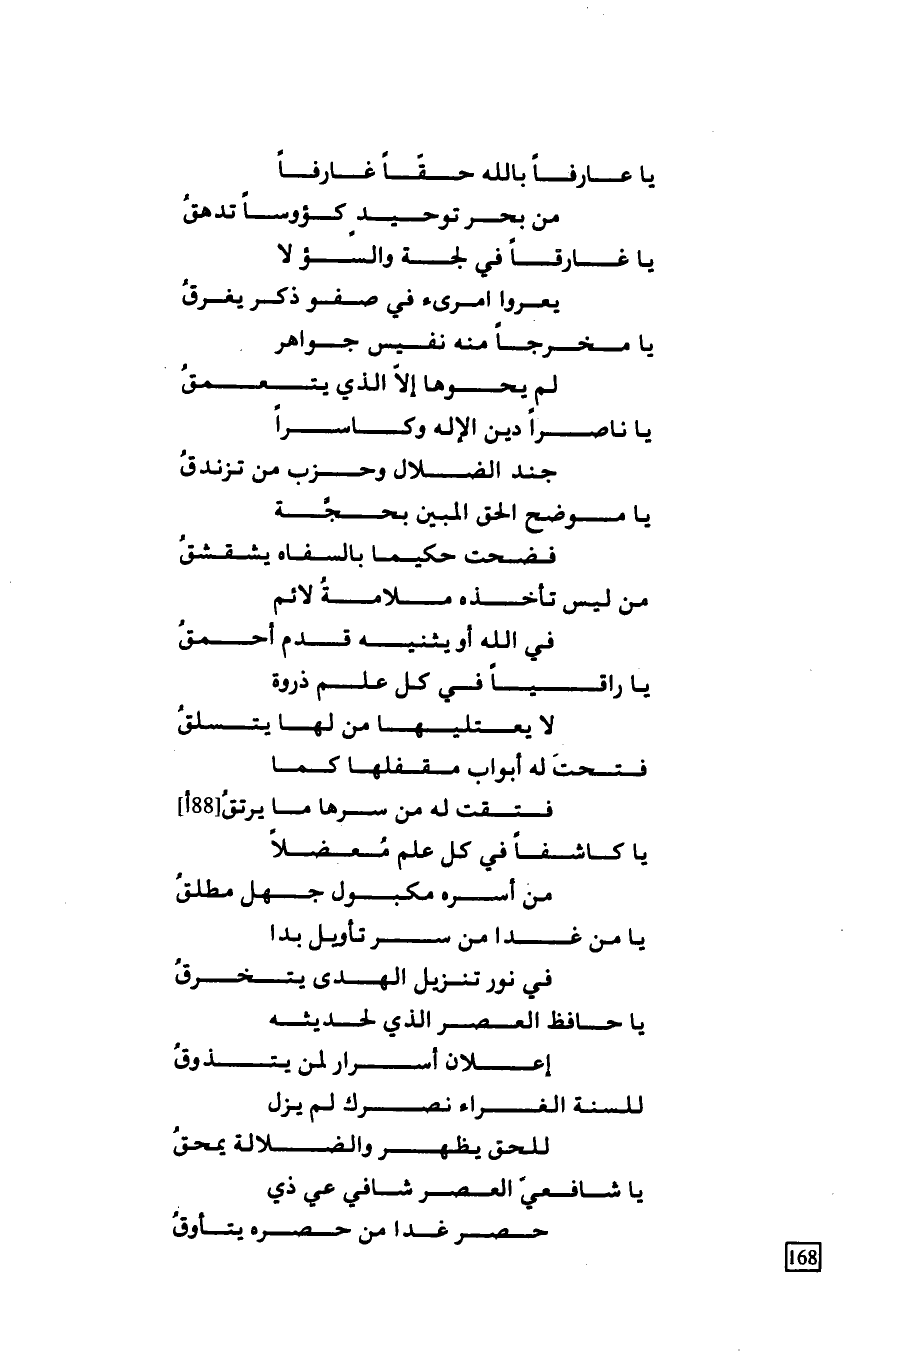 يا عارفاً بالله حقّاً غارفاً
من بحر توحيد كؤوساً تدهقُ
يا غارقاً في لجة والسؤ لا
يعروا امرىء في صفو ذكر يغرقُ
يا مخرجاً منه نفيس جواهر
لم يحوها إلاّ الذي يتعمقُ
يا ناصراً دين الإله وكاسراً
جند الضلال وحزب من تزندقُ
يا موضح الحق المبين بحجَّة
فضحت حكيما بالسفاه يشقشقُ
من ليس تأخذه ملامةُ لائم
في الله أو يثنيه قدم أحمقُ
يا راقياً في كل علم ذروة
لا يعتليها من لها يتسلقُ
فتحتَ له أبواب مقفلها كما
فتقت له من سرها ما يرتقُ[88أ]
يا كاشفاً في كل علم مُعضلاً
من أسره مكبول جهل مطلقُ
يا من غدا من سر تأويل بدا
في نور تنزيل الهدى يتخرقُ
يا حافظ العصر الذي لحديثه
إعلان أسرار لمن يتذوقُ
للسنة الغراء نصرك لم يزل
للحق يظهر والضلالة يمحقُ
يا شافعيّ العصر شافي عي ذي
حصر غدا من حصره يتأوقُ
168